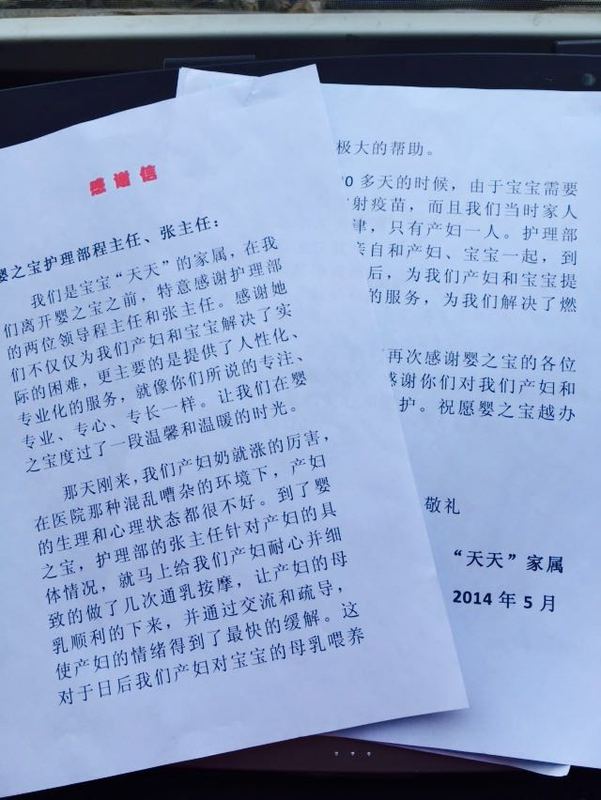 感谢信
婴之宝护理部程主任、张主任：
我们是宝宝“天天”的家属，在我
们离开婴之宝之前，特意感谢护理部
的两位领导程主任和张主任。感谢她
们不仅仅为我们产妇和宝宝解决了实
际的困难，更主要的是提供了人性化、
专业化的服务，就像你们所说的专注、
专业、专心、专长一样。让我们在婴
之宝度过了一段温馨和温暖的时光。
那天刚来，我们产妇奶就涨的厉害，
在医院那种混乱嘈杂的环境下，产妇
的生理和心理状态都很不好。到了婴
之宝，护理部的张主任针对产妇的具
体情况，就马上给我们产妇耐心并细
致的做了几次通乳按摩，让产妇的母
乳顺利的下来，并通过交流和疏导，
使产妇的情绪得到了最快的缓解。这
对于日后我们产妇对宝宝的母乳喂养
极大的帮助。
0 多天的时候，由于宝宝需要
射疫苗，而且我们当时家人
津，只有产妇一人。护理部
亲自和产妇、宝宝一起，到
后，为我们产妇和宝宝提
的服务，为我们解决了燃
再次感谢婴之宝的各位
感谢你们对我们产妇和
护。祝愿婴之宝越办
敬礼
“天天”家属
2014 年 5 月